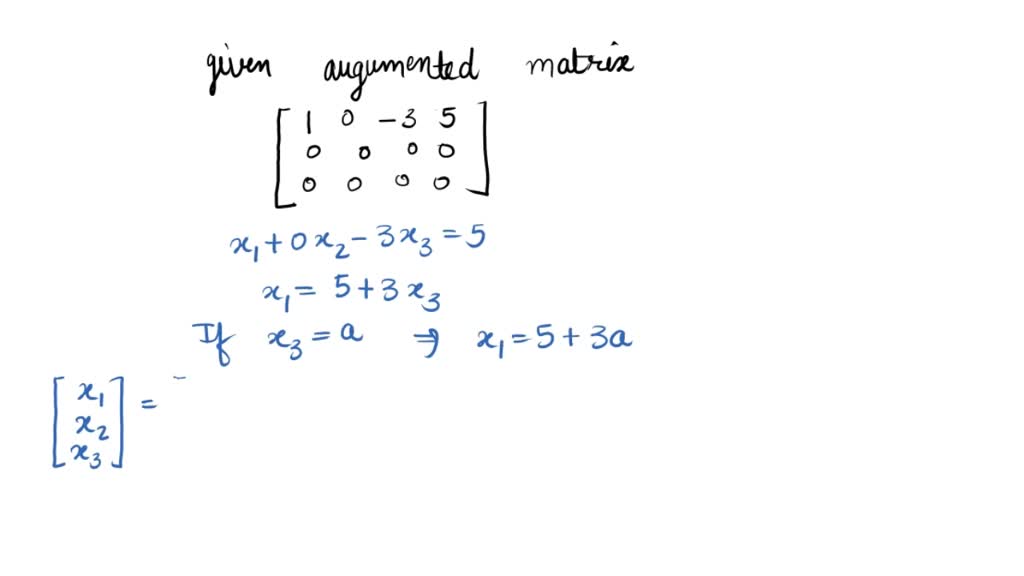 given augumented matrix
1 0 -3 5
0 0 0 0
0 0 0 0
x₁ + 0x₂ - 3x₃ = 5
x₁ = 5 + 3x₃
If x₃ = a ⇒ x₁ = 5 + 3a
x₁
x₂ =
x₃